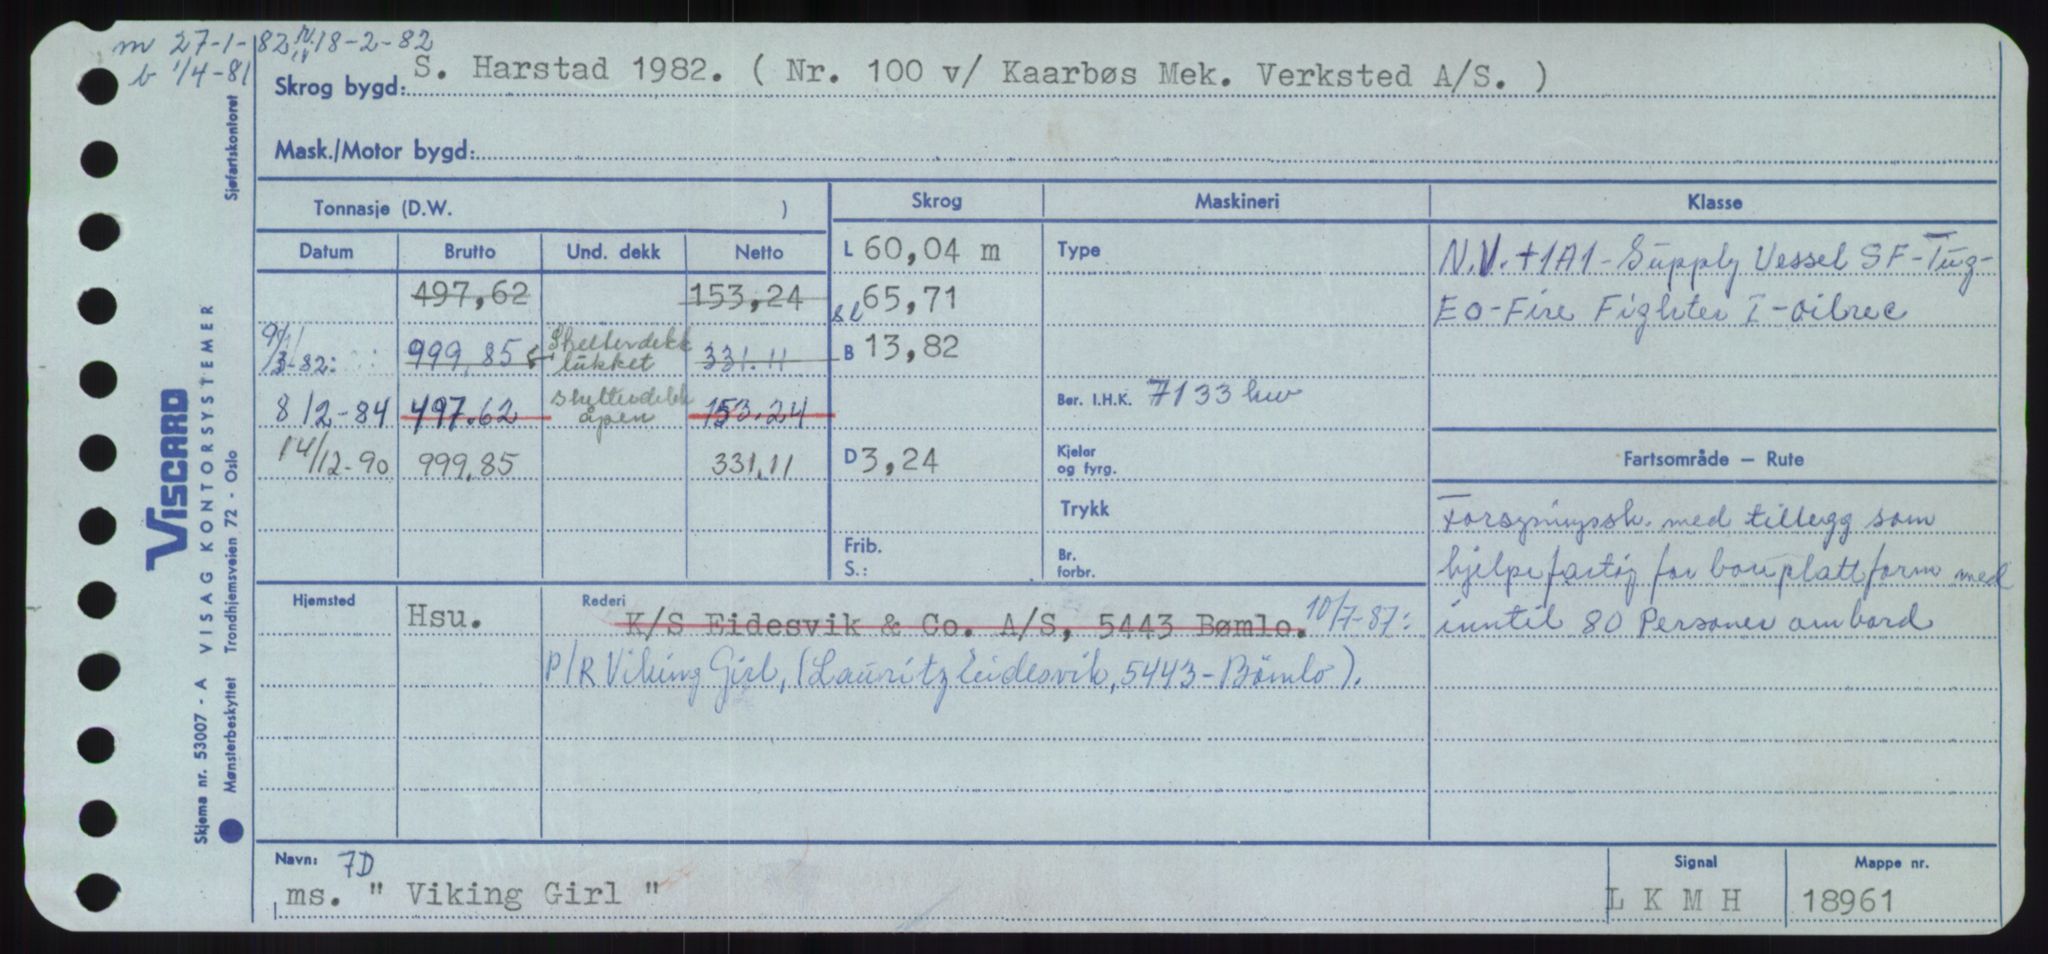 m 27-1-82 18-2-82
b 1/4-81
Skrog bygd: S. Harstad 1982. ( Nr. 100 v/ Kaarbøs Mek. Verksted A/S. )
Mask./Motor bygd:
Tonnasje (D.W. )
Skrog
Maskineri
Klasse
Datum Brutto Und. dekk Netto
L 60,04 m
Type
N.V. +1A1-Supply Vessel SF-Tug-
497,62 153,24
sl 65,71
EO-Fire Fighter I-oilrec
9/3-82: 999,85 Shelterdekk lukket 331.11
B 13,82
8/2-84 497.62 Shelterdekk åpen 153.24
Ber. I.H.K. 7133 hw
14/12-90 999,85 331,11
D 3,24
Kjelor
og fyrg.
Fartsområde — Rute
Trykk
Forsyningssk. med tillegg som
Frib.
S.:
Br.
forbr.
hjelpefartøy for boreplattform med
inntil 80 Personer ombord
Hjemsted Hsu.
Rederi K/S Eidesvik & Co. A/S, 5443 Bømlo. 10/7-87:
P/R Viking Girl, (Lauritz Eidesvik, 5443-Bömlo).
Navn: 7D
ms. " Viking Girl "
Signal
L K M H
Mappe nr.
18961
Sjøfartskontoret
VISCARD
VISAG KONTORSYSTEMER
Skjema nr. 53007 - A
Mønsterbeskyttet Trondhjemsveien 72 - Oslo